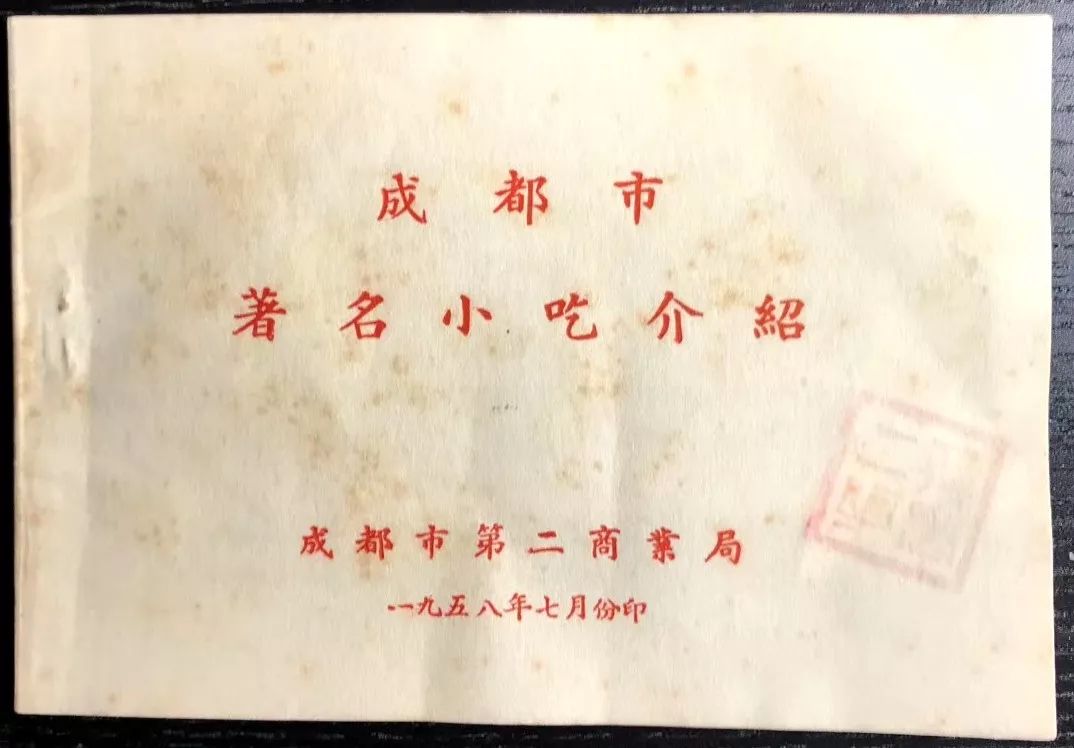 成都市
著名小吃介紹
成都市第二商業局
一九五八年七月份印